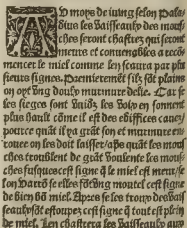 AD moys de iuing selon Pala-
dius les vaisseaulx des mou-
ches seront chastrez qui seront
meurs et convenables a reco-
mencer le miel comme len scaura par plu
sieurs signes. Premierement silz sont plains
on oyt ung doulx murmure delie. Car se
les sieges sont vuidz les voix en sonnent
plus hault côme il est des edifices cauez/
pource quât il ya grât son et murmure en-
roue on les doit laisser/apŝ quât les mou
ches troublent de grât voulente les mou-
ches fusques cest signe q̃ le miel est meur/se
lon Varrō se elles font ung moult cest signe
de bien bō miel. Apres se les trouz des vais
seaulx sōt estoupez cest signe q̃ tout est plein
de miel. Len chastrera les vaisseaulx aux